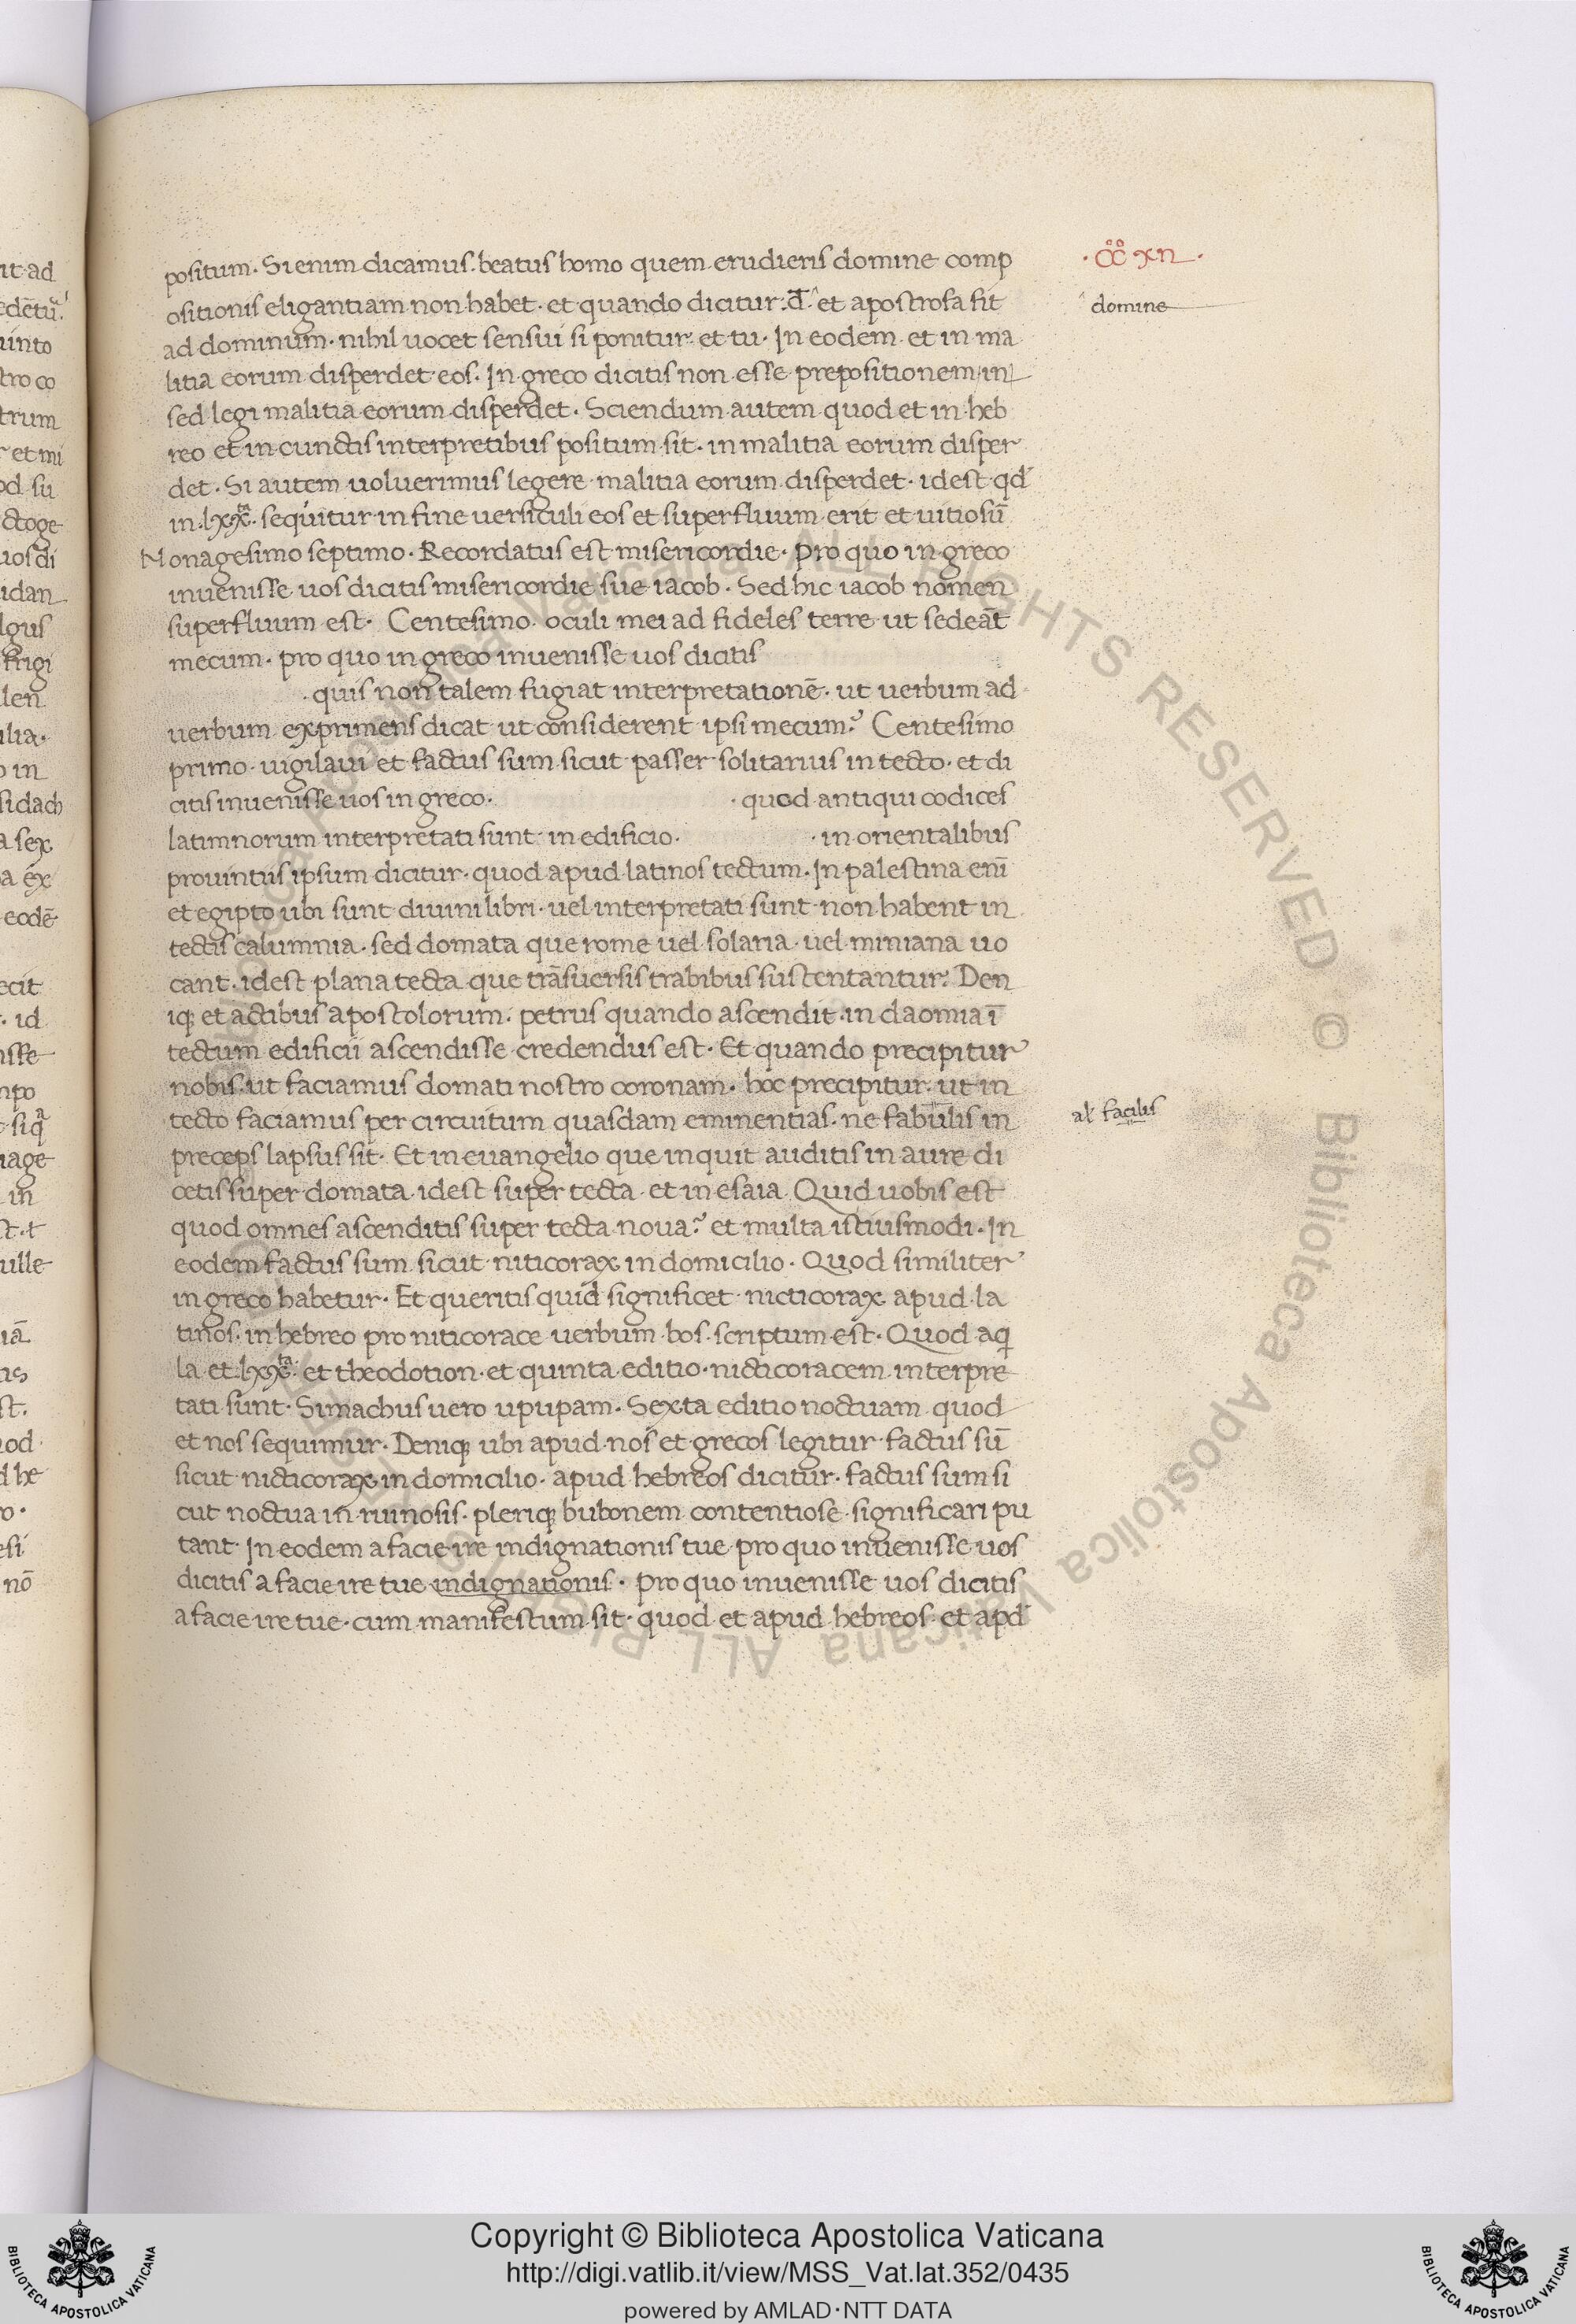 it ad
edētu᷑
uinto
tro co
trum
et mi
od su
ctoge
uos di
idan
lgus
frigi
len
ilia·
o in
sidach
a sex
a ex
eodē
ecit
· id
isse
mpo
siq
iage
in
st·t
uille
iā
st.
od
d he
o·
esi
nō
·CC̊ xn·
positum· Si enim dicamus· beatus homo quem erudieris domine comp
ositionis eligantiam non habet· et quando dicitur:d̄· et apostrofa fit
domine
ad dominum· nihil uocet sensui si ponitur et tu· In eodem et in ma
litia eorum disperdet eos. In greco dicitis non esse prepositionem in
sed legi malitia eorum disperdet. Sciendum autem quod et in heb
reo et in cunctis interpretibus positum sit· in malitia eorum disper
det· Si autem uoluerimus legere malitia eorum disperdet· idest qd
in·lxxta· sequitur in fine uersiculi eos et superfluum erit et uitiosū
Nonagesimo septimo· Recordatus est misericordie· pro quo in greco
inuenisse uos dicitis misericordie sue iacob· Sed hic iacob nomen
superfluum est· Centesimo· oculi mei ad fideles terre ut sedeāt
mecum· pro quo in greco inuenisse uos dicitis
·quis non talem fugiat interpretationē· ut uerbum ad
uerbum exprimens dicat ut considerent ipsi mecum? Centesimo
primo· uigilaui et factus sum sicut passer solitarius in tecto· et di
citis inuenisse uos in greco· ·quod antiqui codices
latimnorum interpretati sunt in edificio· ·in orientalibus
prouintiis ipsum dicitur· quod apud latinos tectum· In palestina enī
et egipto ubi sunt diuini libri· uel interpretati sunt non habent in
tectis calumnia· sed domata que rome uel solaria· uel miniana uo
cant· idest plana tecta que trāsuersis trabibus sustentantur? Den
iq; et actibus apostolorum· petrus quando ascendit in daomia ī
tectum edificii ascendisse credendus est· Et quando precipitur
nobis ut faciamus domati nostro coronam· hoc precipitur· ut in
tecto faciamus per circuitum quasdam eminentias· ne fabulis in
al' facilis
preceps lapsus sit· Et in euangelio que inquit auditis in aure di
cetis super domata idest super tecta et in esaia Quid uobis est
quod omnes ascenditis super tecta noua? et multa istiusmodi· In
eodem factus sum sicut niticorax in domicilio· Quod similiter
in greco habetur· Et queritis quid significet nicticorax apud la
tinos· in hebreo pro niticorace uerbum bos· scriptum est· Quod aq
la et lxxta· et theodotion· et quinta editio· nicticoracem interpre
tati sunt· Simachus uero upupam· Sexta editio noctuam quod
et nos sequimur· Deniq; ubi apud nos et grecos legitur factus sū
sicut nicticorax in domicilio· apud hebreos dicitur· factus sum si
cut noctua in ruinosis· pleriq; bubonem contentiose significari pu
tant· In eodem a facie ire indignationis tue pro quo inuenisse uos
dicitis a facie ire tue indignationis· pro quo inuenisse uos dicitis
a facie ire tue· cum manifestum sit· quod et apud hebreos et apd
Copyright © Biblioteca Apostolica Vaticana
http://digi.vatlib.it/view/MSS_Vat.lat.352/0435
powered by AMLAD·NTT DATA
BIBLIOTECA APOSTOLICA VATICANA
BIBLIOTECA APOSTOLICA VATICANA